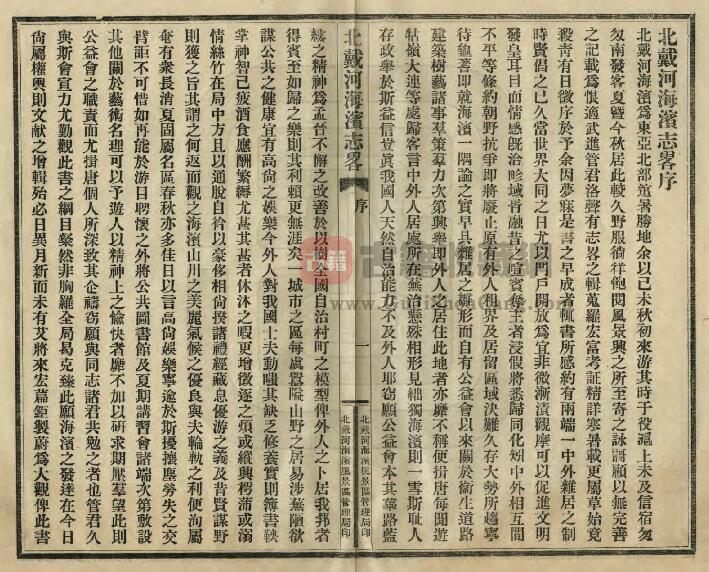 北戴河海濱志畧序
北戴河海濱爲東亞北部避暑勝地余以己未秋初來游其時于役滬上未及信宿匆
匆南發客夏暨今秋居此較久野服徜徉飽閱風景興之所至寄之詠謌顧以無完善
之記載爲悵適武進管君洛聲有志畧之輯蒐羅宏富考証精詳寒暑載更屬草始竟
殺青有日徵序於予余因夢寐是書之早成者輒書所感約有兩端一中外雜居之制
時賢倡之已久當世界大同之日尤以門戶開放爲宜非微漸漬觀摩可以促進文明
發皇耳目而情感既洽畛域胥融昔之喧賓奪主者浸假將悉歸同化矧中外相互間
不平等條約朝野抗爭即將廢止原有外人租界及居留區域決難久存大勢所趨寧
待龜蓍即就海濱一隅論之實早具雜居之雛形而自有公益會以來關於衞生道路
建築樹藝諸事羣策羣力次第興舉即外人之居住此地者亦靡不稱便捨唐每聞遊
牯嶺大連等處歸客言中外人居處所在無洁懸殊相形見絀獨海濱則一雪斯耻人
存政舉於斯益信豈眞我國人天然自治能力不及外人耶窃願公益會本其篳路藍
縷之精神爲孟晉不懈之改善於以樹全國自治村町之模型俾外人之卜居我邦者
得賓至如歸之樂則其利賴更無涯矣一城市之區每虞囂隘山野之居易涉荒陋欲
謀公共之健康宜有高尙之娛樂今外人對我國士夫動嗤其缺乏修養實則簿書鞅
掌神智已疲酒食應酬繁縟尤甚其甚者休沐之暇更增徵逐之煩或縱興樗蒲或溺
情絲竹在局中方且以通脫自衿以豪侈相尙揆諸禮經藏息優游之義及昔賢謀野
則獲之旨其謂之何返而觀之海濱山川之美麗氣候之優良與夫輪軌之利便洵屬
奄有衆長消夏固屬名區春秋亦多佳日以言高尙娛樂寧逾於斯擾攘塵勞失之交
臂詎不可惜如再能於游目騁懷之外將公共圖書館及夏期講習會諸端次第敷設
其他關於藝術名理可以予遊人以精神上之愉快者靡不加以硏求期壓羣望此則
公益會之職責而尤捨唐個人所深致其企禱窃願與同志諸君共勉之者也管君久
與斯會宣力尤勤觀此書之綱目粲然非胸羅全局曷克臻此願海濱之發達在今日
尙屬權輿則文献之增輯殆必日異月新而未有艾將來宏篇鉅製蔚爲大觀俾此書
北戴河海濱志畧
序
一
北戴河海濱風景區管理局印
北戴河海濱風景區管理局印
古籍